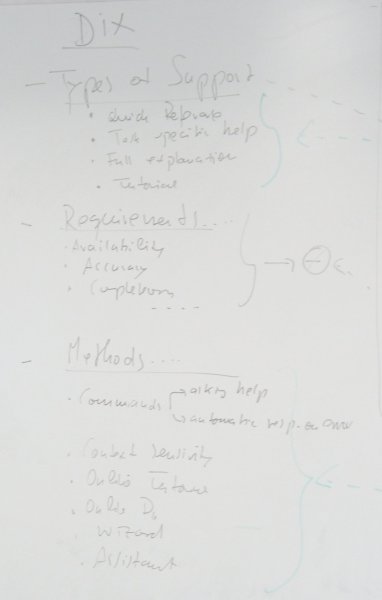 Dix
– Types of Support
• Quick Reference
• Task specific help
• Full explanation
• Tutorial
– Requirements....
• Availability
• Accuracy
• Completeness
– Methods....
• Commands
asking help
automatic resp. on error
• Context Sensitivity
• Online Tutorial
• Online D
• Wizard
• Assistant